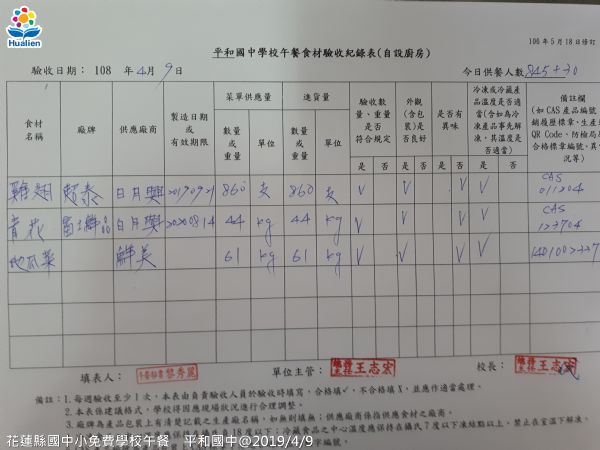 Hualien
106年5月18日修訂
平和國中學校午餐食材驗收紀錄表(自設廚房)
驗收日期：108 年 4月 9日
今日供餐人數 845+30
食材名稱 廠牌 供應廠商 製造日期或有效期限 菜單供應量 進貨量 驗收數量、重量是否符合規定 外觀(含包裝)是否良好 是否有異味 冷凍或冷藏產品溫度是否適當(含如為冷凍產品事先解凍，其溫度是否適當) 備註欄
數量或重量 單位 數量或重量 單位
(如 CAS 產品編號
QR Code、防檢局
合格標章編號、異
況等)
是 否 是 否 是 否 是 否
雞翅 超泰 日月興 860 支 860 支 V V V V CAS 011204
青花 日月興 20200814 44 kg 44 kg V V V V CAS
地瓜葉 鮮美 61 kg 61 kg V V V V
填表人： 單位主管： 王志宏 校長： 王志宏
備註：1.每週驗收至少1次，本表由負責驗收人員於驗收時填寫，合格填✓，不合格填X，並應作適當處理。
2.本表係建議格式，學校得因應現場狀況進行合理調整。
3.廠牌為產品包裝上有清楚記載之生產廠名，如無則填無；供應廠商係指供應食材之廠商。
保持在攝氏18度以下；冷藏食品之中心溫度應保持在攝氏7度以下凍結點以上，禁止在室溫下解凍。
花蓮縣國中小免費學校午餐 平和國中@2019/4/9